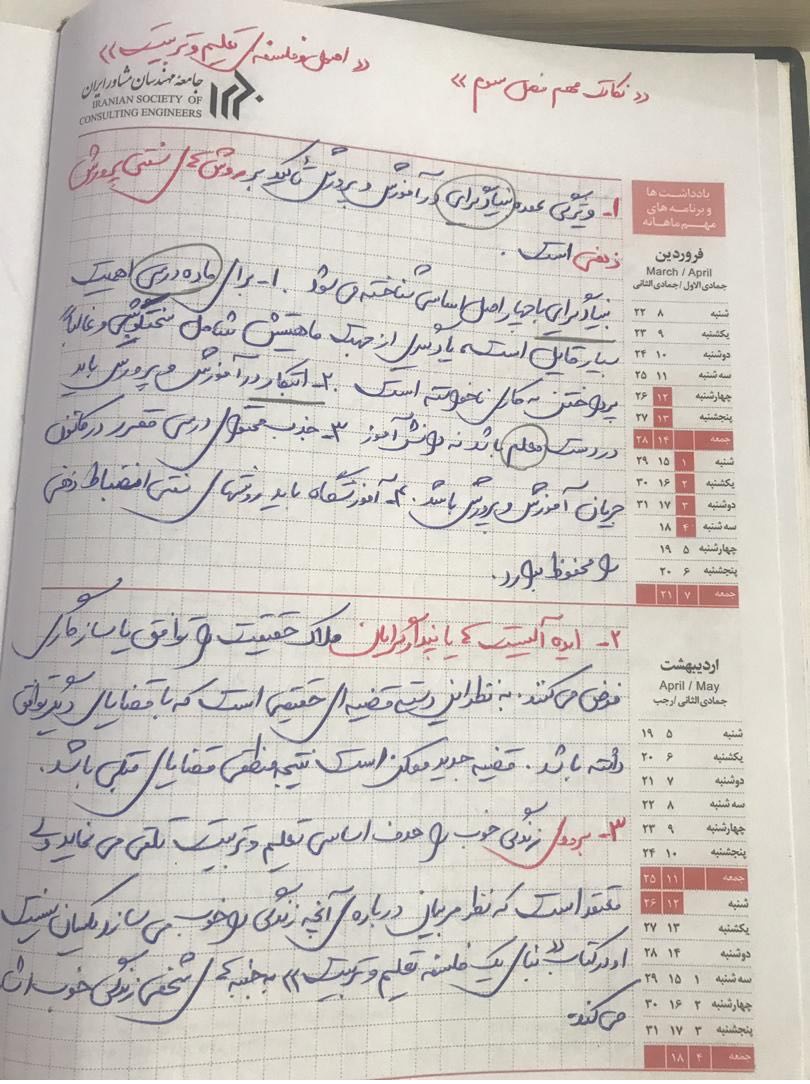 «اصول و فلسفه‌ی تعلیم و تربیت»
«نکات مهم فصل سوم»
جامعهٔ مهندسان مشاور ایران
IRANIAN SOCIETY OF
CONSULTING ENGINEERS
۱- ویژگی عمده بنیادگرایی در آموزش و پرورش تأکید بر روش های سنتی پرورش
ذهنی است.
بنیادگرایی با چهار اصل اساسی شناخته می شود. ۱- برای ماده درسی اهمیت
بسیار قایل است، یادگیری از جهت ماهیتش شامل سختکوشی و غالباً
پرداختن به کاری ناخواسته است. ۲- ابتکار در آموزش و پرورش باید
در دست معلم باشد نه دانش آموز ۳- جذب محتوای درسی مقرر در کانون
جریان آموزش و پرورش باشد. ۴- آموزشگاه باید روشهای سنتی انضباط ذهنی
را محفوظ بدارد.
۲- ایده آلیست ها یا پندارگرایان ملاک حقیقت را توافق یا سازگاری
فرض می کنند. به نظر این دسته قضیه ای حقیقی است که با قضایای دیگر توافق
داشته باشد. قضیه جدید ممکن است نتیجه منطقی قضایای قبلی باشد.
۳- برودی زندگی خوب را هدف اساسی تعلیم و تربیت تلقی می نماید ولی
معتقد است که نظر مربیان درباره ی آنچه زندگی را خوب می سازد یکسان نیست
او در کتاب «بنای یک فلسفه تعلیم و تربیت» به جنبه های شخصی زندگی خوب اشا
می کند.
یادداشت ها
و برنامه های
مهم ماهانه
فروردین
March / April
جمادی الاول / جمادی الثانی
شنبه ۸ ۲۲
یکشنبه ۹ ۲۳
دوشنبه ۱۰ ۲۴
سه شنبه ۱۱ ۲۵
چهارشنبه ۱۲ ۲۶
پنجشنبه ۱۳ ۲۷
جمعه ۱۴ ۲۸
شنبه ۱ ۱۵ ۲۹
یکشنبه ۲ ۱۶ ۳۰
دوشنبه ۳ ۱۷ ۳۱
سه شنبه ۴ ۱۸
چهارشنبه ۵ ۱۹
پنجشنبه ۶ ۲۰
جمعه ۷ ۲۱
اردیبهشت
April / May
جمادی الثانی / رجب
شنبه ۵ ۱۹
یکشنبه ۶ ۲۰
دوشنبه ۷ ۲۱
سه شنبه ۸ ۲۲
چهارشنبه ۹ ۲۳
پنجشنبه ۱۰ ۲۴
جمعه ۱۱ ۲۵
شنبه ۱۲ ۲۶
یکشنبه ۱۳ ۲۷
دوشنبه ۱۴ ۲۸
سه شنبه ۱ ۱۵ ۲۹
چهارشنبه ۲ ۱۶ ۳۰
پنجشنبه ۳ ۱۷ ۳۱
جمعه ۴ ۱۸